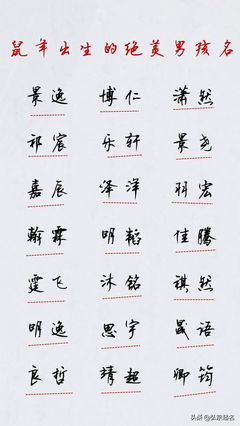 鼠年出生的绝美男孩名
景逸 博仁 潇然
祁宸 乐轩 景尧
嘉辰 泽洋 羽宏
翰霖 明韬 佳腾
霆飞 沐铭 祺然
明逸 思宇 晟语
良哲 靖超 卿筠
头条 @弘泉起名